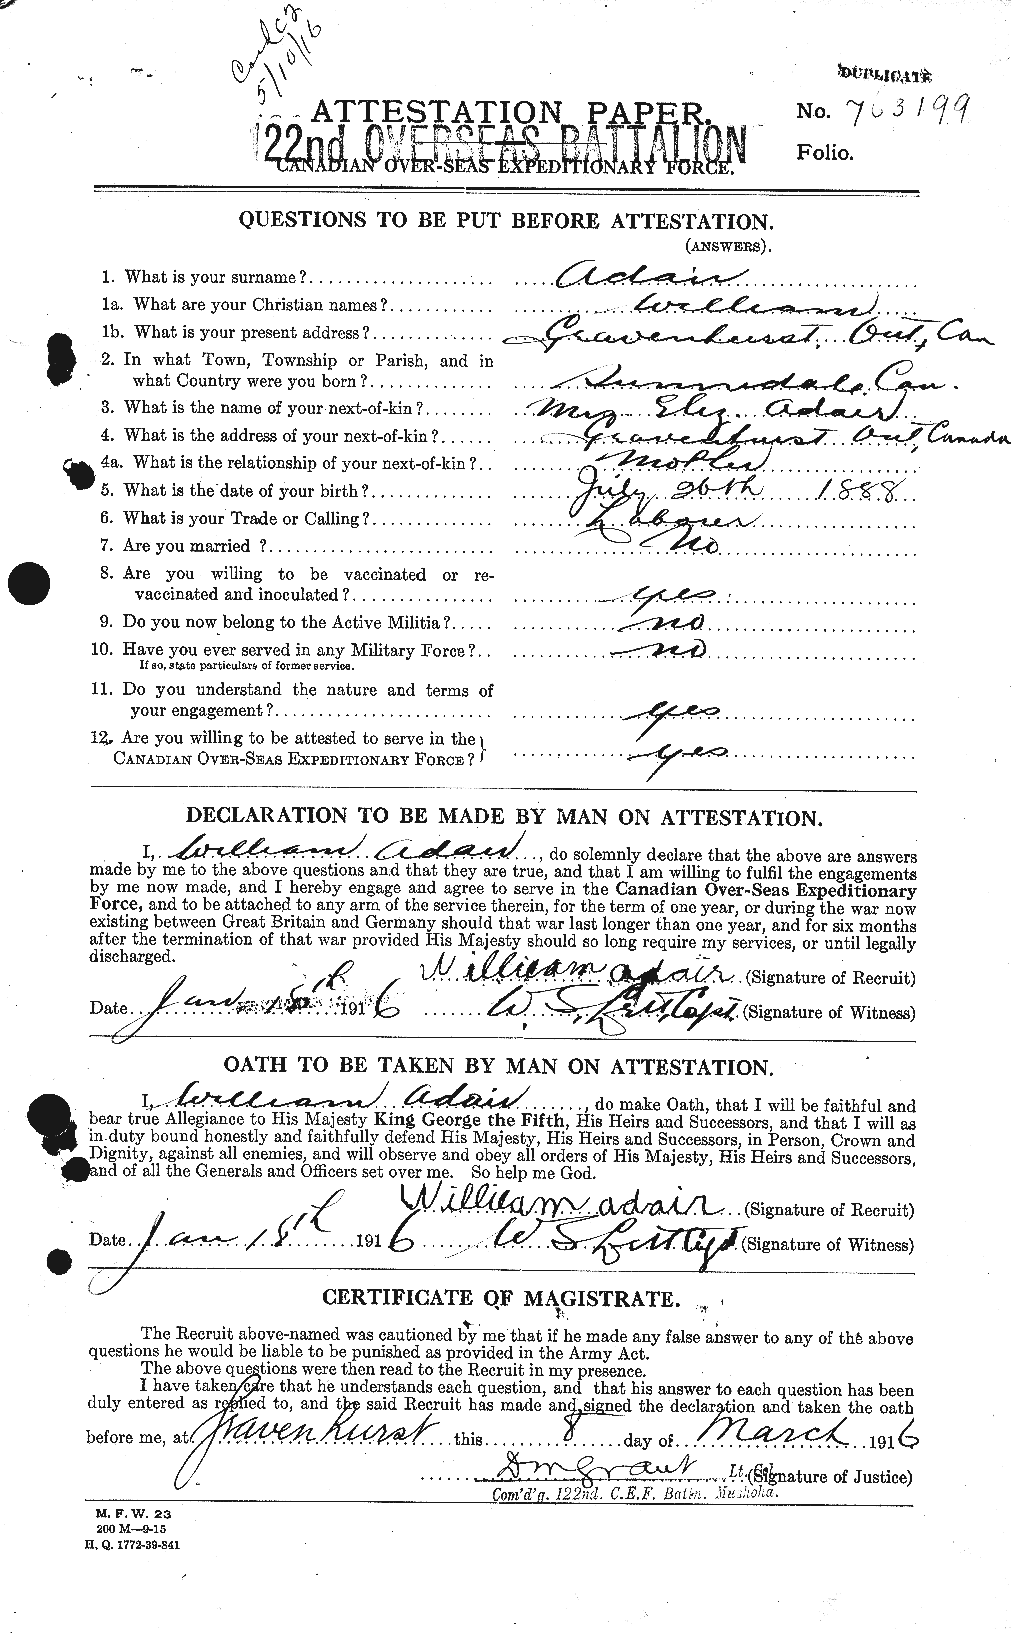 Card C2
5/10/16
DUPLICATE
ATTESTATION PAPER.
No. 763199
122nd OVERSEAS BATTALION
Folio.
CANADIAN OVER-SEAS EXPEDITIONARY FORCE.
QUESTIONS TO BE PUT BEFORE ATTESTATION.
(ANSWERS).
1. What is your surname? Adair
1a. What are your Christian names? William
1b. What is your present address? Gravenhurst, Ont, Can
2. In what Town, Township or Parish, and in
what Country were you born? Sunnidale, Can.
3. What is the name of your next-of-kin? Mrs Eliz. Adair
4. What is the address of your next-of-kin? Gravenhurst Ont, Canada
4a. What is the relationship of your next-of-kin? Mother
5. What is the date of your birth? July 26th 1888
6. What is your Trade or Calling? Labourer
7. Are you married ? No
8. Are you willing to be vaccinated or re-
vaccinated and inoculated? yes
9. Do you now belong to the Active Militia? no
10. Have you ever served in any Military Force? no
If so, state particulars of former service.
11. Do you understand the nature and terms of
your engagement? yes
12. Are you willing to be attested to serve in the
CANADIAN OVER-SEAS EXPEDITIONARY FORCE? yes
DECLARATION TO BE MADE BY MAN ON ATTESTATION.
I, William Adair, do solemnly declare that the above are answers
made by me to the above questions and that they are true, and that I am willing to fulfil the engagements
by me now made, and I hereby engage and agree to serve in the Canadian Over-Seas Expeditionary
Force, and to be attached to any arm of the service therein, for the term of one year, or during the war now
existing between Great Britain and Germany should that war last longer than one year, and for six months
after the termination of that war provided His Majesty should so long require my services, or until legally
discharged.
William adair (Signature of Recruit)
Date Jan 18th 1916 (Signature of Witness)
OATH TO BE TAKEN BY MAN ON ATTESTATION.
I, William Adair, do make Oath, that I will be faithful and
bear true Allegiance to His Majesty King George the Fifth, His Heirs and Successors, and that I will as
in duty bound honestly and faithfully defend His Majesty, His Heirs and Successors, in Person, Crown and
Dignity, against all enemies, and will observe and obey all orders of His Majesty, His Heirs and Successors,
and of all the Generals and Officers set over me. So help me God.
William adair (Signature of Recruit)
Date Jan 18th 1916 (Signature of Witness)
CERTIFICATE OF MAGISTRATE.
The Recruit above-named was cautioned by me that if he made any false answer to any of the above
questions he would be liable to be punished as provided in the Army Act.
The above questions were then read to the Recruit in my presence.
I have taken care that he understands each question, and that his answer to each question has been
duly entered as replied to, and the said Recruit has made and signed the declaration and taken the oath
before me, at Gravenhurst this 8 day of March 1916
D M Grant Lt. Col. (Signature of Justice)
Com'd'g. 122nd. C.E.F. Battn. Muskoka.
M. F. W. 23
200 M—9-15
H. Q. 1772-39-841